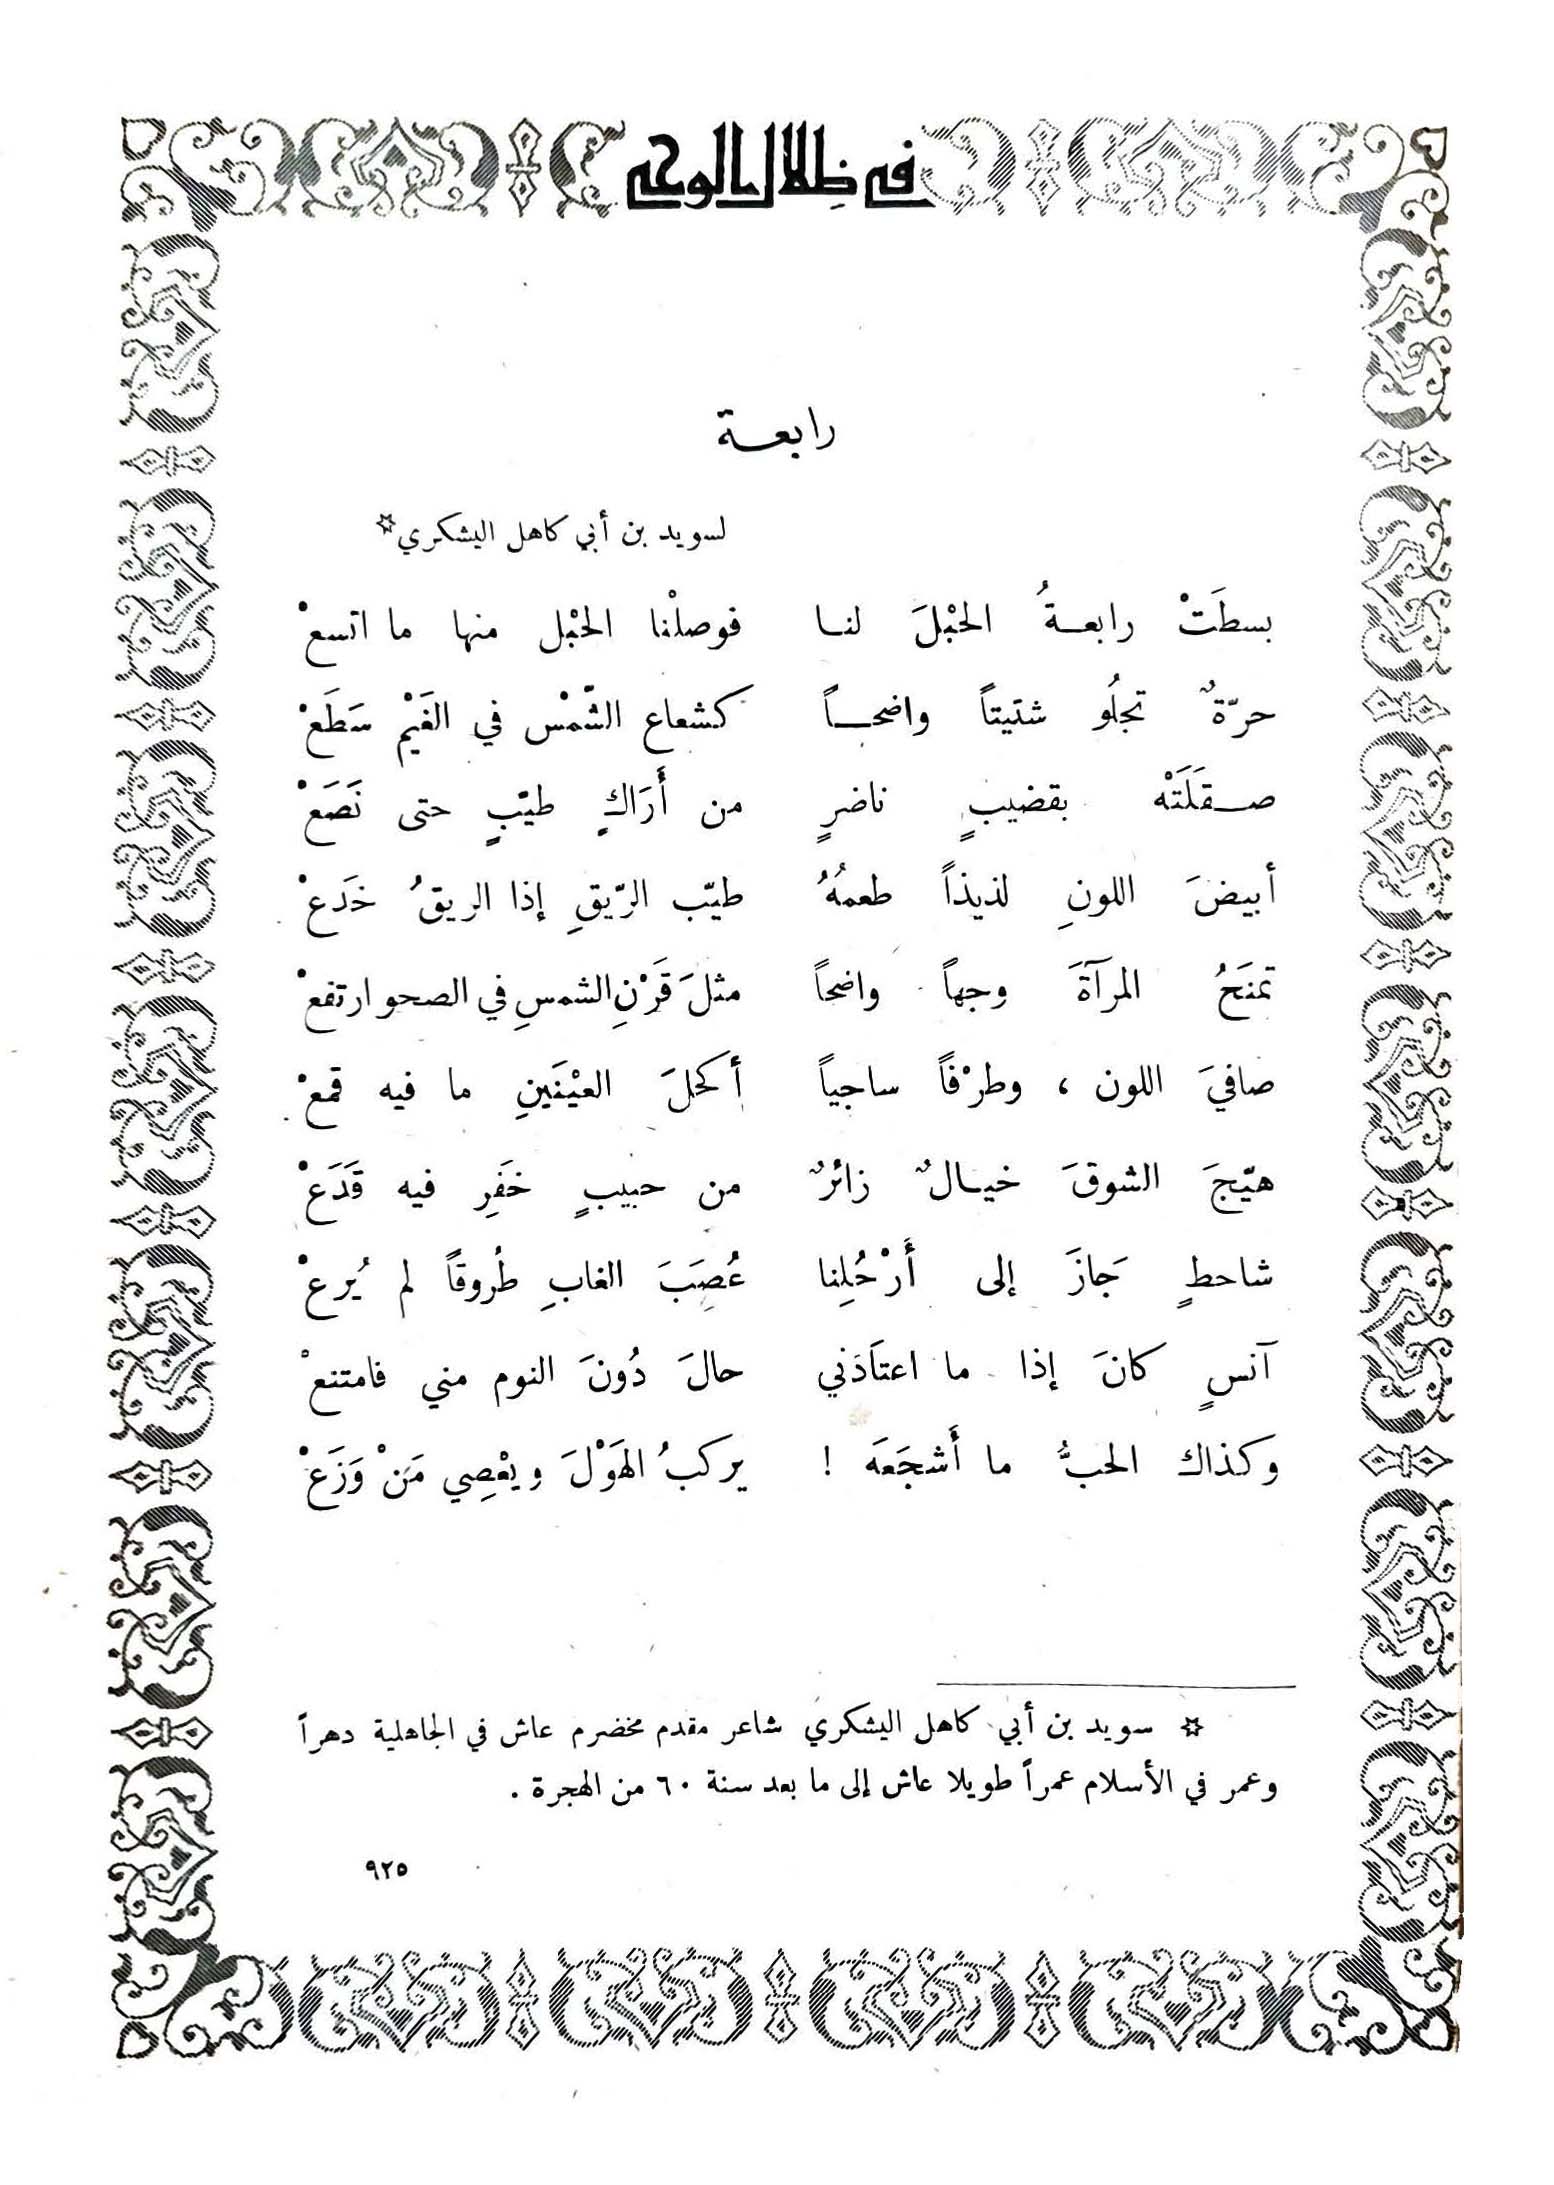 في ظلال الوحي
رابعة
لسويد بن أبي كاهل اليشكري*
بسطَتْ رابعةُ الحبْلَ لنا فوصلْنا الحبْل منها ما اتسعْ
حرّةٌ تجلُو شتيتاً واضحاً كشعاع الشّمْس في الغَيْم سَطَعْ
صقلَتَهْ بقضيبٍ ناضرٍ من أَرَاكٍ طيّبٍ حتى نَصَعْ
أبيضَ اللونِ لذيذاً طعمُهُ طيّب الرّيقِ إذا الريقُ خَدَعْ
تمنَحُ المرآةَ وجهاً واضحاً مثلَ قَرْنِ الشمسِ في الصحو ارتفعْ
صافيَ اللون ، وطرْفاً ساجياً أكحلَ العيْنَينِ ما فيه قمعْ
هيّجَ الشوقَ خيالٌ زائرٌ من حبيبٍ خَفَرِ فيه قَدَعْ
شاحطٍ جَازَ إلى أَرْحُلِنا عُصَبَ الغابِ طُروقاً لم يُرعْ
آنسٍ كانَ إذا ما اعتَادَني حالَ دُونَ النوم مني فامتنعْ
وكذاك الحبُّ ما أَشجَعَه ! يركبُ الهَوْلَ ويعْصِي مَنْ وَزَعْ
* سويد بن أبي كاهل اليشكري شاعر مقدم مخضرم عاش في الجاهلية دهراً
وعمر في الأسلام عمراً طويلا عاش إلى ما بعد سنة ٦٠ من الهجرة .
٩٢٥